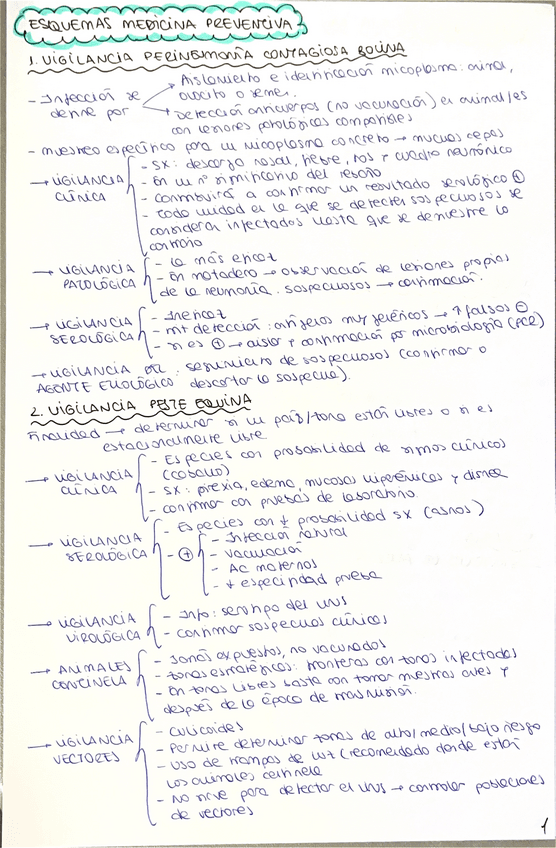 ESQUEMAS MEDICINA PREVENTIVA
1. VIGILANCIA PERINEUMONÍA CONTAGIOSA BOVINA
- Infección se define por
→ Aislamiento e identificación micoplasma: animal, ovocito o semen.
→ Detección anticuerpos (no vacunación) en animal/es con lesiones patológicas compatibles
- muestreo específico para un micoplasma concreto → muchas cepas
→ VIGILANCIA CLÍNICA
- SX: descarga nasal, fiebre, tos y cuadro neumónico
- En un nº significativo del rebaño
- Contribuirá a confirmar un resultado serológico ⊕
- Toda unidad en la que se detecten sospechosos se
considera infectados hasta que se demuestre lo
contrario
→ VIGILANCIA PATOLÓGICA
- La más eficaz
- En matadero → observación de lesiones propias
de la neumonía. Sospechosos → confirmación.
→ VIGILANCIA SEROLÓGICA
- Ineficaz
- mt detección: antígenos muy genéricos → ↑ falsos ⊖
- si es ⊕ → aislar y confirmación por microbiología (PCR)
→ VIGILANCIA DEL AGENTE ETIOLÓGICO: seguimiento de sospechosos (confirmar o
descartar la sospecha).
2. VIGILANCIA PESTE EQUINA
Finalidad → determinar si un país/zona están libres o si es
estacionalmente libre
→ VIGILANCIA CLÍNICA
- Especies con probabilidad de signos clínicos
(caballo)
- SX: pirexia, edema, mucosas hiperémicas y disnea
- confirmar con pruebas de laboratorio
→ VIGILANCIA SEROLÓGICA
- Especies con ↓ probabilidad SX (asnos)
- ⊕
- Infección natural
- Vacunación
- AC maternos
- ↓ especificidad prueba
→ VIGILANCIA VIROLÓGICA
- Info: serotipo del virus
- Confirmar sospechas clínicas
→ ANIMALES CENTINELA
- Sanos expuestos, no vacunados
- zonas estratégicas: fronteras con zonas infectadas
- En zonas libres basta con tomar muestras antes y
después de la época de transmisión.
→ VIGILANCIA VECTORES
- Culicoides
- Permite determinar zonas de alto/medio/bajo riesgo
- Uso de trampas de luz (recomendado donde están
los animales centinela
- No sirve para detectar el virus → controlar poblaciones
de vectores
1